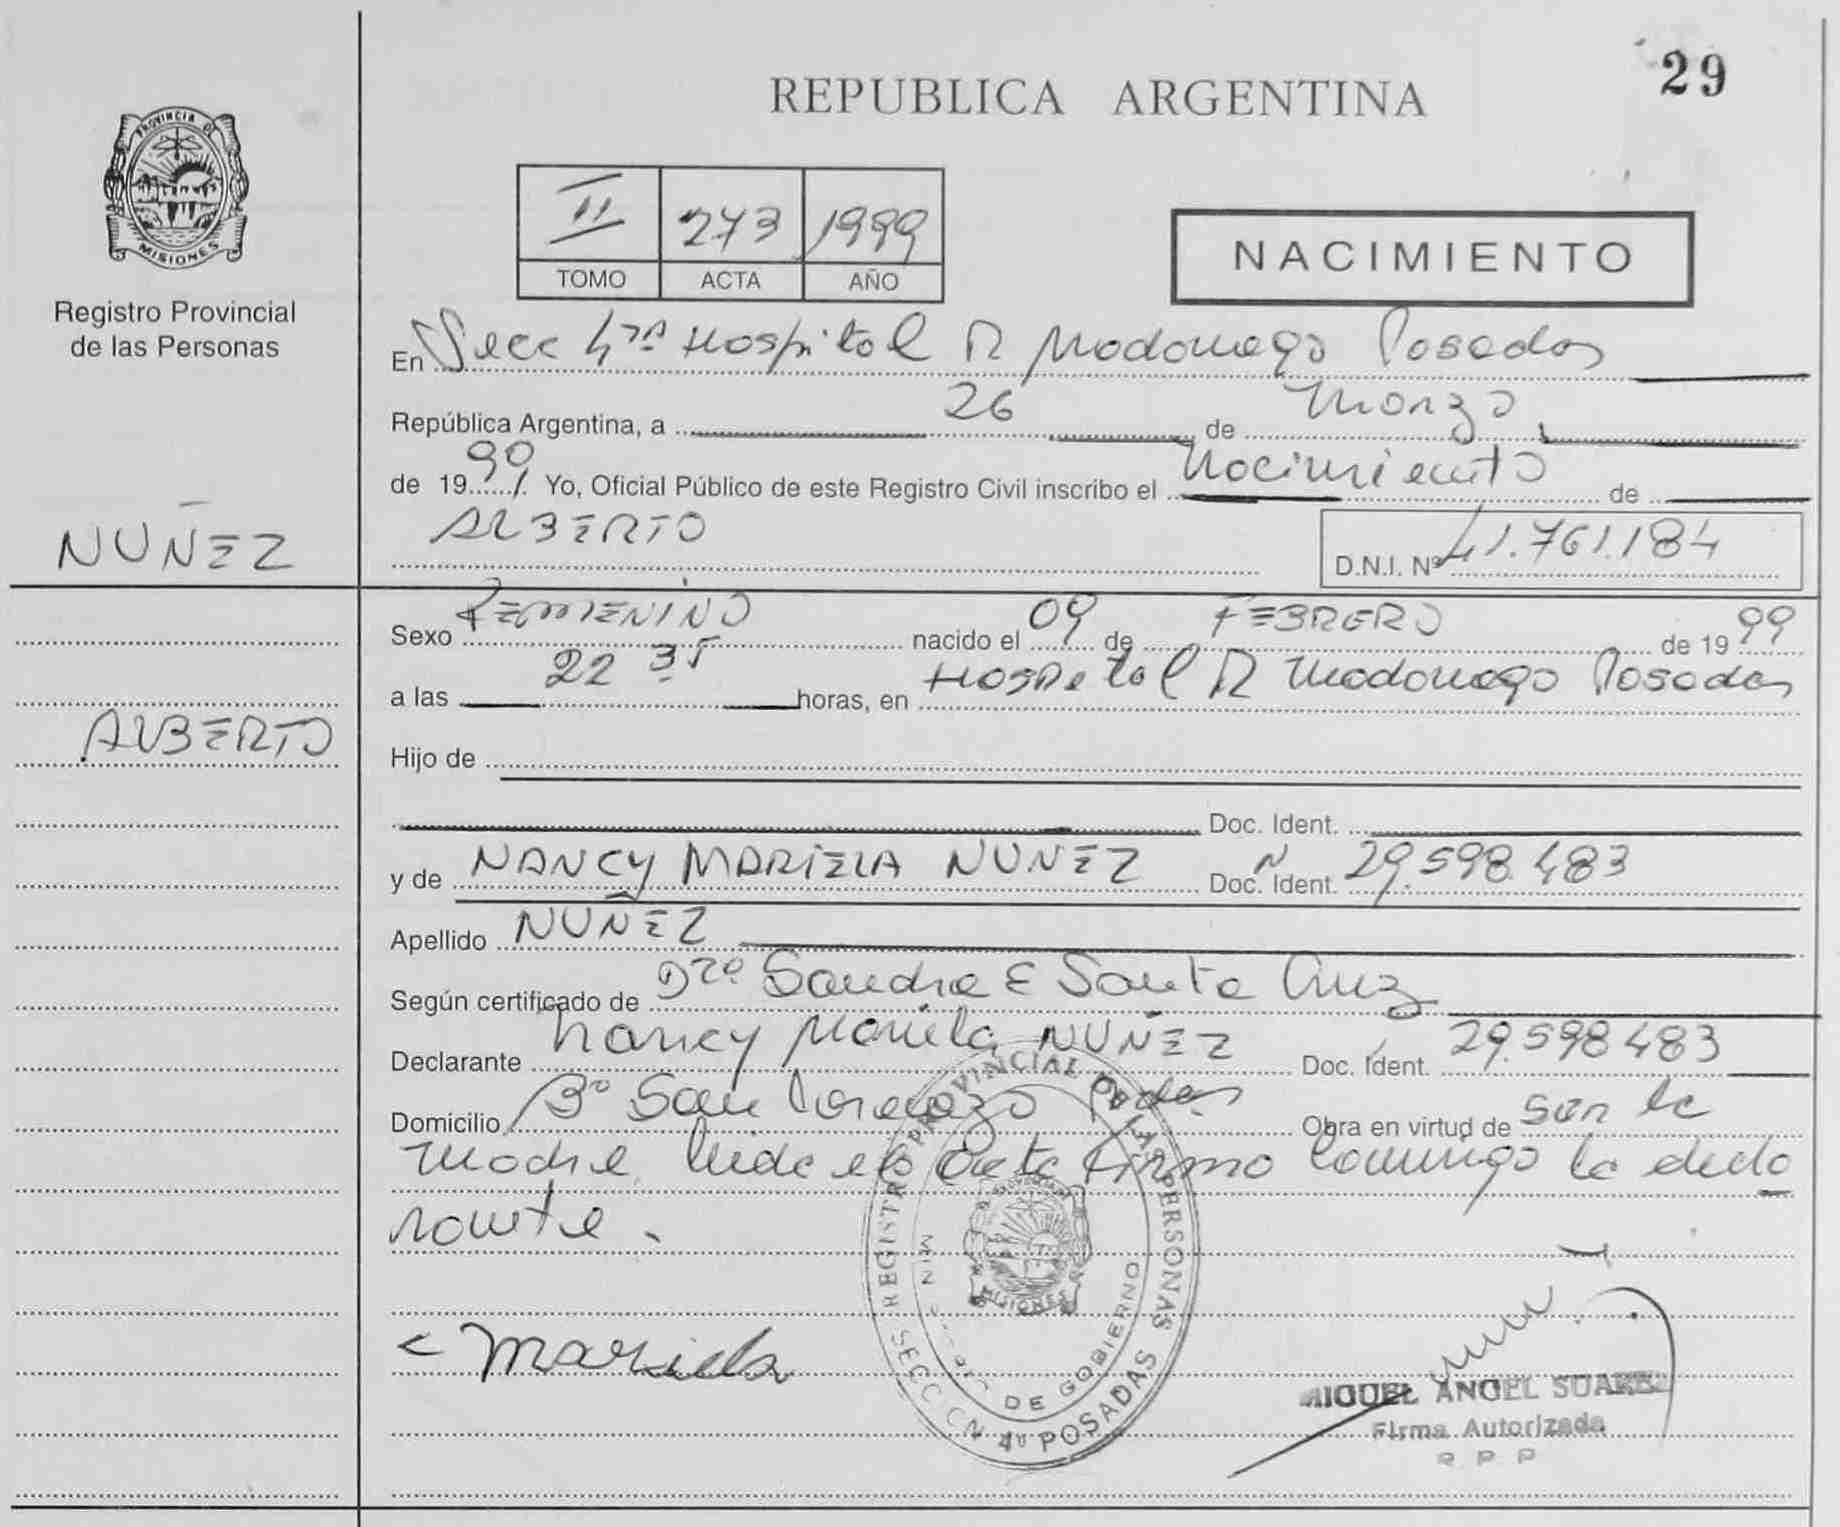 29
REPUBLICA ARGENTINA
PROVINCIA DE
MISIONES
Registro Provincial
de las Personas
II 273 1999
TOMO ACTA AÑO
NACIMIENTO
En Secc 4ta Hospital R Madariaga Posadas
República Argentina, a 26 de Marzo
de 1999 Yo, Oficial Público de este Registro Civil inscribo el Nacimiento de
ALBERTO
D.N.I. Nº 41.761.184
NUÑEZ
ALBERTO
Sexo FEMENINO nacido el 09 de FEBRERO de 1999
a las 22 35 horas, en Hospital R Madariaga Posadas
Hijo de
Doc. Ident.
y de NANCY MARIELA NUÑEZ Doc. Ident. 29.598.483
Apellido NUÑEZ
Según certificado de Dra. Sandra E Santa Cruz
Declarante Nancy Mariela NUÑEZ Doc. Ident. 29.598483
Domicilio Bº San Lorenzo Pdas Obra en virtud de ser la
madre leida el acta firma conmigo la decla
rante.
Mariela
REGISTRO PROVINCIAL DE LAS PERSONAS
SECCION 4º POSADAS
DE GOBIERNO
MISIONES
MIGUEL ANGEL SUAREZ
Firma Autorizada
R P P